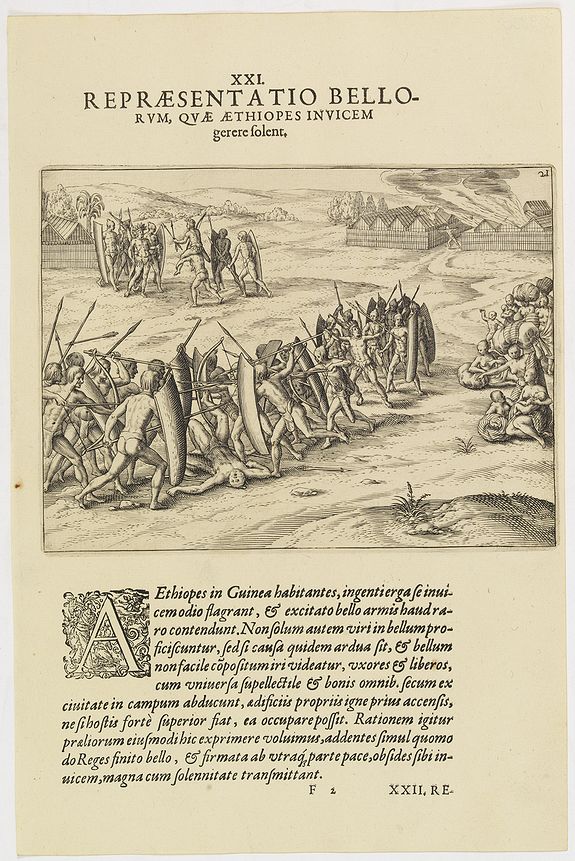 XXI.
REPRÆSENTATIO BELLO-
RVM, QVÆ ÆTHIOPES INVICEM
gerere ſolent.
21
AEthiopes in Guinea habitantes, ingenti erga ſe inui-
cem odio flagrant, & excitato bello armis haud ra-
ro contendunt. Non ſolum autem viri in bellum pro-
ficiſcuntur, ſed ſi cauſa quidem ardua ſit, & bellum
non facile cõpoſitum iri videatur, vxores & liberos,
cum vniuerſa ſupellectile & bonis omnib. ſecum ex
ciuitate in campum abducunt, ædificiis propriis igne prius accenſis,
ne ſi hoſtis fortè ſuperior fiat, ea occupare poſſit. Rationem igitur
præliorum eiuſmodi hic exprimere voluimus, addentes ſimul quomo
do Reges finito bello, & firmata ab vtraq́; parte pace, obſides ſibi in-
uicem, magna cum ſolennitate tranſmittant.
F 2 XXII. RE-